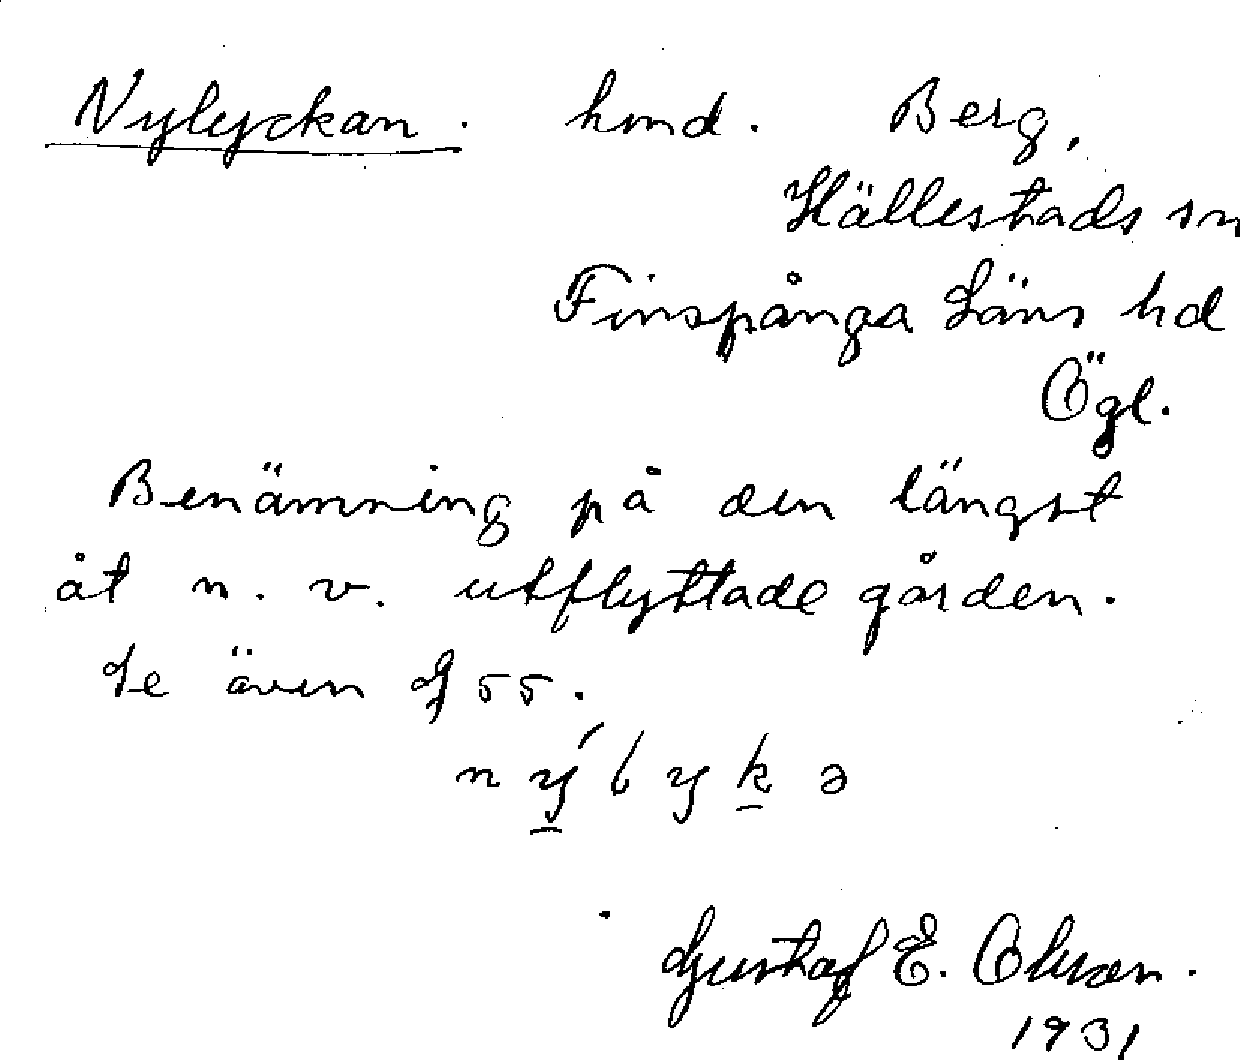 Nylyckan. hmd. Berg,
Hällestads sn
Finspånga Läns hd
Ögl.
Benämning på den längst
åt n. v. utflyttade gården.
Se även 55.
Gustaf E. Olsson.
1931